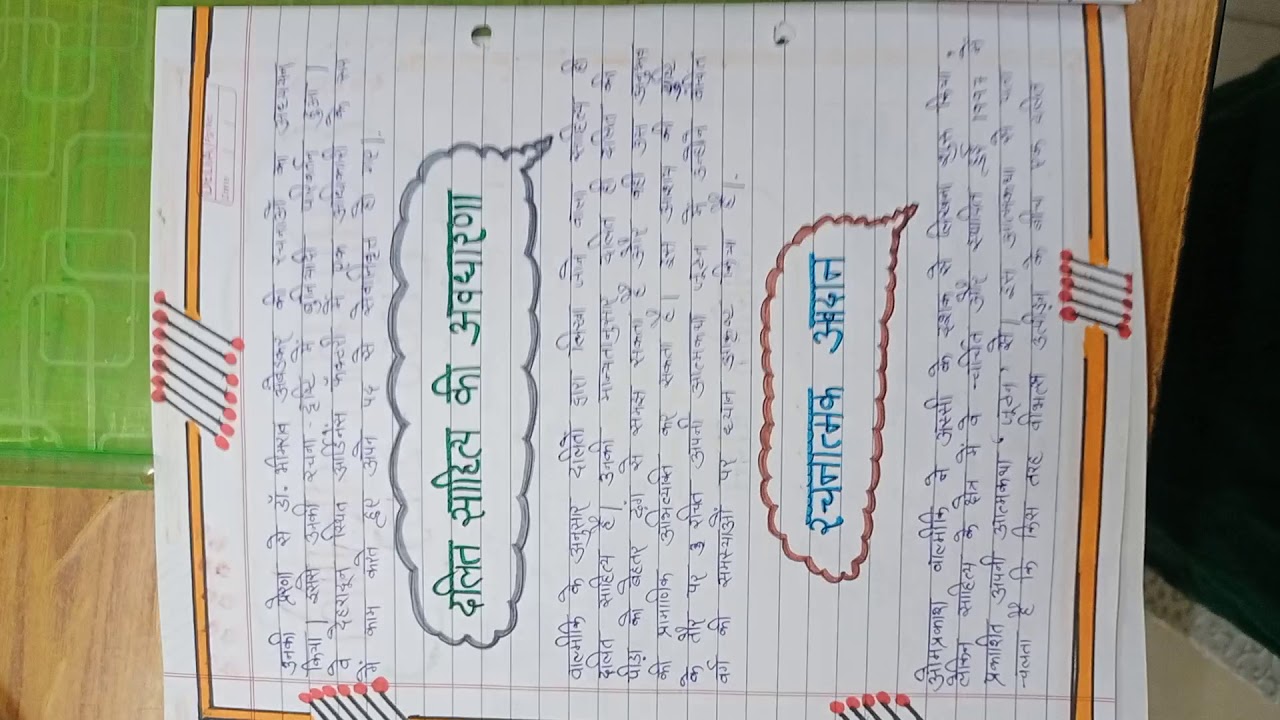 उनकी प्रेरणा से डॉ. भीमराव अंबेडकर की रचनाओं का अध्ययन
किया। इससे उनकी रचना-दृष्टि में बुनियादी परिवर्तन हुआ।
वे देहरादून स्थित आर्डिनेंस फॅक्टरी में एक अधिकारी के रूप
में काम करते हुए अपने पद से सेवानिवृत्त हो गए।
दलित साहित्य की अवधारणा
वाल्मीकि के अनुसार दलितों द्वारा लिखा जाने वाला साहित्य ही
दलित साहित्य है। उनकी मान्यतानुसार दलित ही दलित की
पीड़ा को बेहतर ढंग से समझ सकता है और वही उस अनुभव
की प्रामाणिक अभिव्यक्ति कर सकता है। इस आशय की पुष्टि
के तौर पर रचित अपनी आत्मकथा जूठन में उन्होंने वंचित
वर्ग की समस्याओं पर ध्यान आकृष्ट किया है।
रचनात्मक अवदान
ओमप्रकाश वाल्मीकि ने अस्सी के दशक से लिखना शुरू किया,
लेकिन साहित्य के क्षेत्र में वे चर्चित और स्थापित हुए १९९७ में
प्रकाशित अपनी आत्मकथा 'जूठन' से। इस आत्मकथा से पता
चलता है कि किस तरह वीभत्स उत्पीड़न के बीच एक दलित